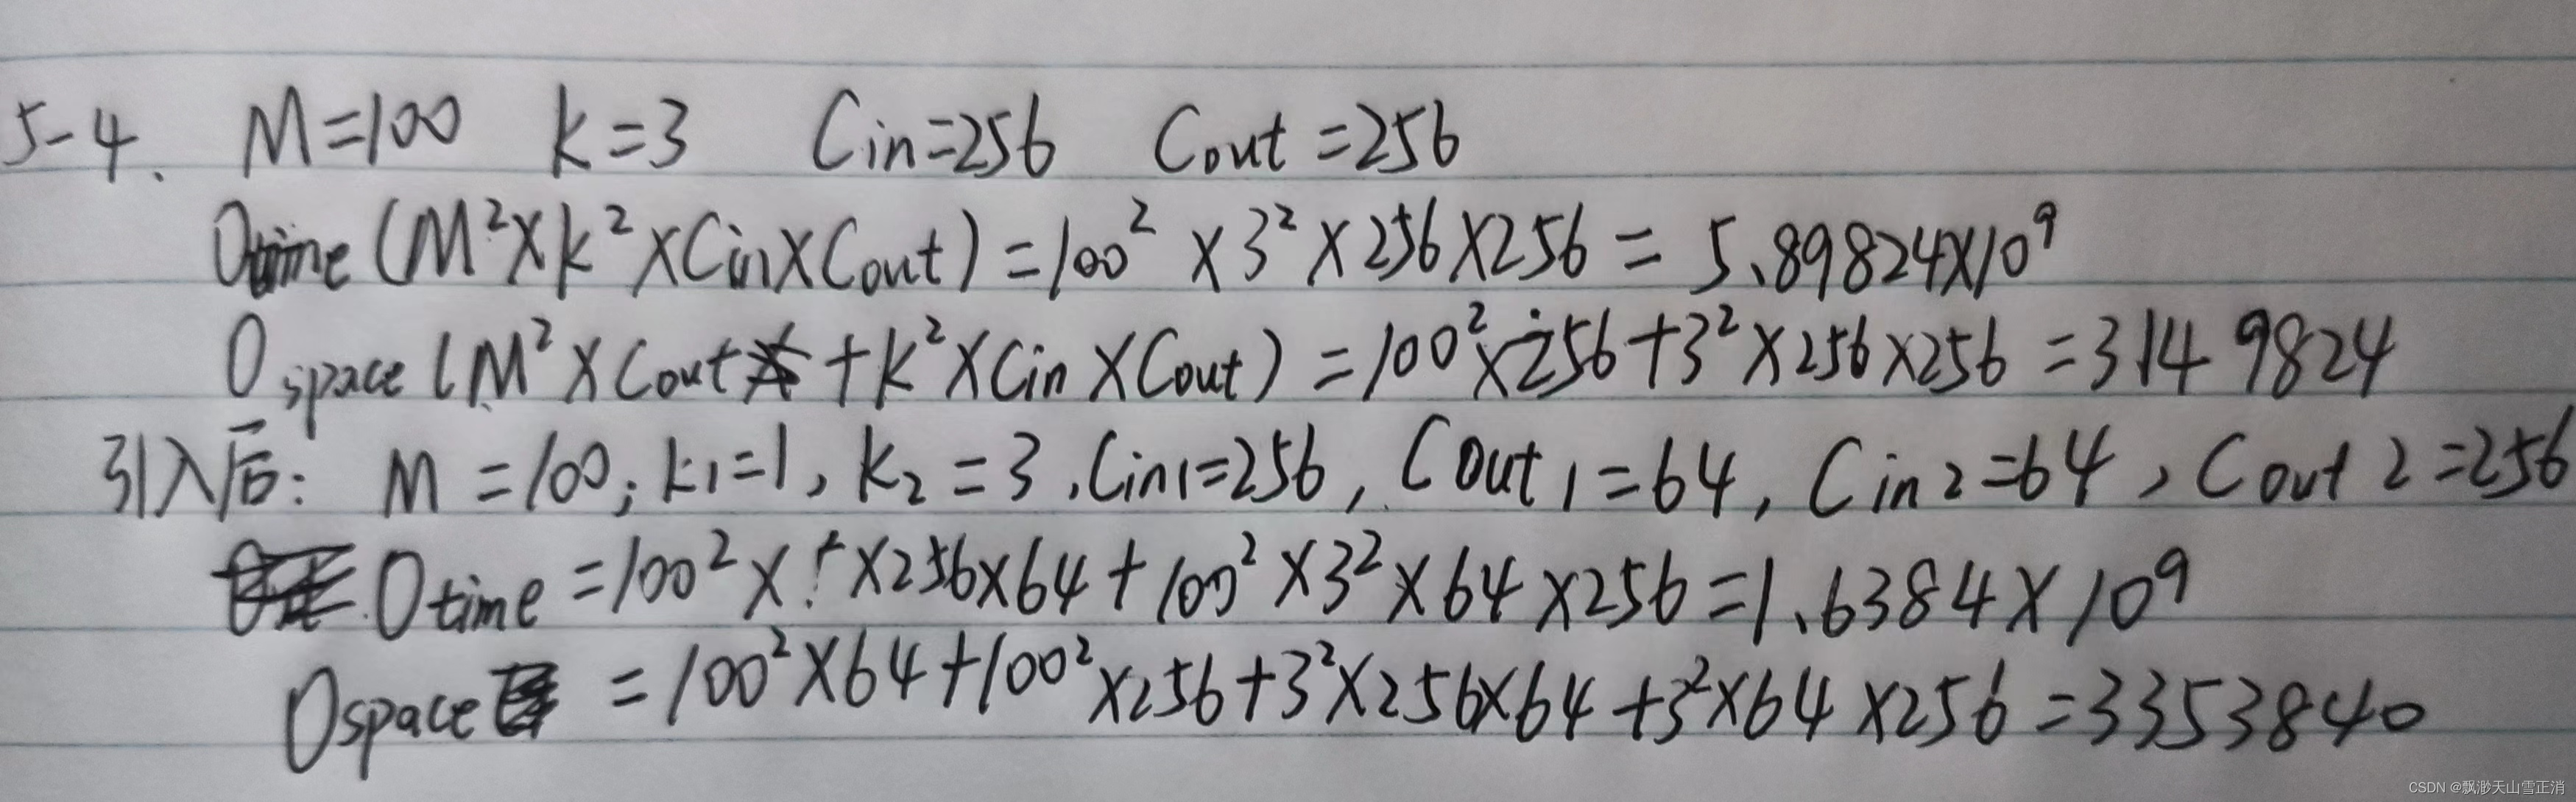 5-4. M=100 k=3 Cin=256 Cout=256
Otime (M²×k²×Cin×Cout) =100²×3²×256×256 = 5.89824×10⁹
Ospace (M²×Cout+k²×Cin×Cout) =100²×256+3²×256×256=3149824
引入后: M=100; k1=1, k2=3, Cin1=256, Cout1=64, Cin2=64, Cout2=256
Otime =100²×1²×256×64+100²×3²×64×256=1.6384×10⁹
Ospace =100²×64+100²×256+3²×256×64+3²×64×256=3353840
CSDN @飘渺天山雪正消